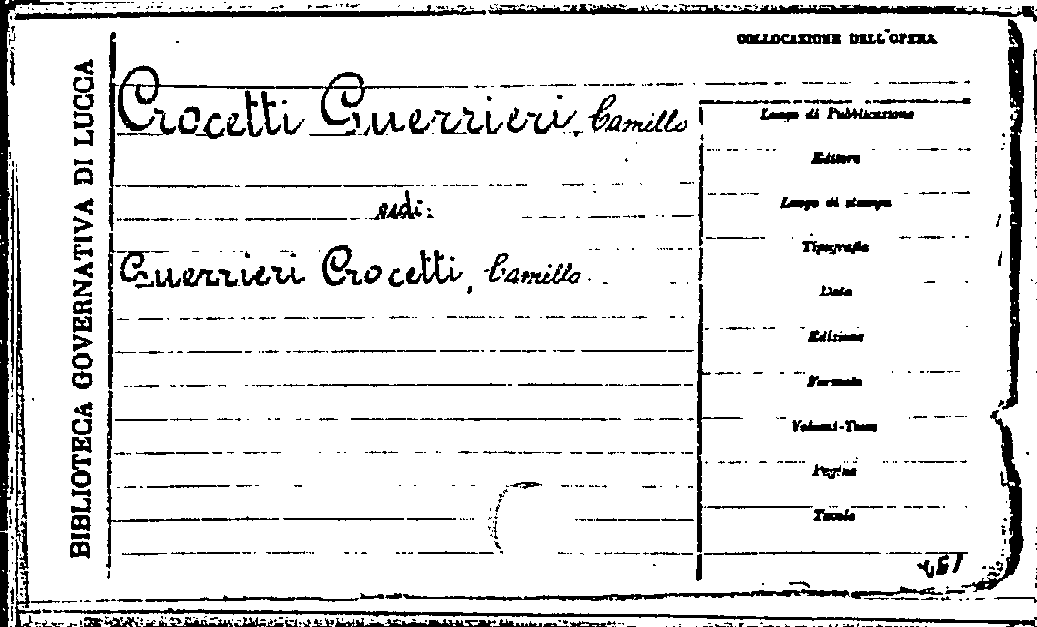 COLLOCAZIONE DELL'OPERA
BIBLIOTECA GOVERNATIVA DI LUCCA
Crocetti Guerrieri, Camillo
vedi:
Guerrieri Crocetti, Camillo
Luogo di Pubblicazione
Editore
Luogo di stampa
Tipografia
Data
Edizione
Formato
Volumi-Tomi
Pagine
Tavole